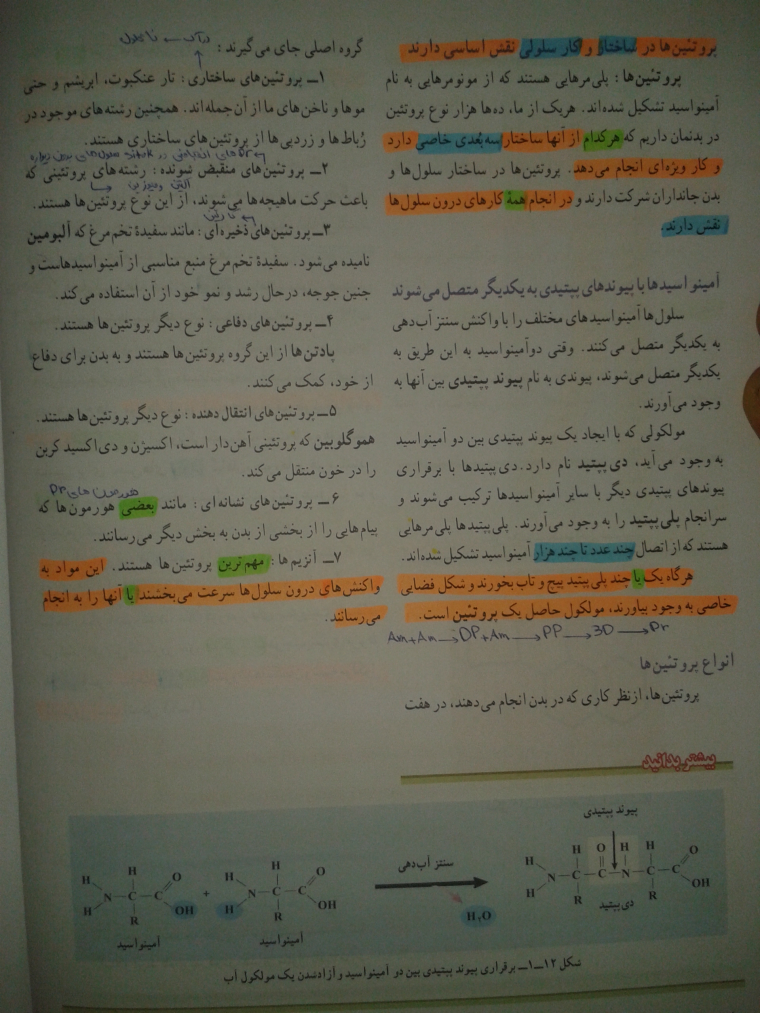 پروتئین‌ها در ساختار و کار سلولی نقش اساسی دارند
پروتئین‌ها : پلی‌مرهایی هستند که از مونومرهایی به نام
آمینواسید تشکیل شده‌اند. هریک از ما، ده‌ها هزار نوع پروتئین
در بدنمان داریم که هرکدام از آنها ساختار سه‌بُعدی خاصی دارد
و کار ویژه‌ای انجام می‌دهد. پروتئین‌ها در ساختار سلول‌ها و
بدن جانداران شرکت دارند و در انجام همهٔ کارهای درون سلول‌ها
نقش دارند.
آمینواسیدها با پیوندهای پپتیدی به یکدیگر متصل می‌شوند
سلول‌ها آمینواسیدهای مختلف را با واکنش سنتز آب‌دهی
به یکدیگر متصل می‌کنند. وقتی دوآمینواسید به این طریق به
یکدیگر متصل می‌شوند، پیوندی به نام پیوند پپتیدی بین آنها به
وجود می‌آورند.
مولکولی که با ایجاد یک پیوند پپتیدی بین دو آمینواسید
به وجود می‌آید، دی‌پپتید نام دارد. دی‌پپتیدها با برقراری
پیوندهای پپتیدی دیگر با سایر آمینواسیدها ترکیب می‌شوند و
سرانجام پلی‌پپتید را به وجود می‌آورند. پلی‌پپتیدها پلی‌مرهایی
هستند که از اتصال چند عدد تا چند هزار آمینواسید تشکیل شده‌اند.
هرگاه یک یا چند پلی‌پپتید پیچ و تاب بخورند و شکل فضایی
خاصی به وجود بیاورند، مولکول حاصل یک پروتئین است.
Am+Am → DP+Am → PP → 3D → Pr
انواع پروتئین‌ها
پروتئین‌ها، ازنظر کاری که در بدن انجام می‌دهند، در هفت
گروه اصلی جای می‌گیرند :
۱ــ پروتئین‌های ساختاری : تار عنکبوت، ابریشم و حتی
موها و ناخن‌های ما از آن جمله‌اند. همچنین رشته‌های موجود در
رُباط‌ها و زردپی‌ها از پروتئین‌های ساختاری هستند.
۲ــ پروتئین‌های منقبض شونده : رشته‌های پروتئینی که
باعث حرکت ماهیچه‌ها می‌شوند، از این نوع پروتئین‌ها هستند.
۳ــ پروتئین‌های ذخیره‌ای : مانند سفیدهٔ تخم‌مرغ که آلبومین
نامیده می‌شود. سفیدهٔ تخم‌مرغ منبع مناسبی از آمینواسیدهاست و
جنین جوجه، درحال رشد و نمو خود از آن استفاده می‌کند.
۴ــ پروتئین‌های دفاعی : نوع دیگر پروتئین‌ها هستند.
پادتن‌ها از این گروه پروتئین‌ها هستند و به بدن برای دفاع
از خود، کمک می‌کنند.
۵ــ پروتئین‌های انتقال دهنده : نوع دیگر پروتئین‌ها هستند.
هموگلوبین که پروتئینی آهن‌دار است، اکسیژن و دی‌اکسید کربن
را در خون منتقل می‌کند.
هورمون های Pr
۶ــ پروتئین‌های نشانه‌ای : مانند بعضی هورمون‌ها که
پیام‌هایی را از بخشی از بدن به بخش دیگر می‌رسانند.
۷ــ آنزیم‌ها : مهم‌ترین پروتئین‌ها هستند. این مواد به
واکنش‌های درون سلول‌ها سرعت می‌بخشند یا آنها را به انجام
می‌رسانند.
بیشتر بدانید
پیوند پپتیدی
سنتز آب‌دهی
H N H C H R C O OH
+
H N H C H R C O OH
H₂O
H N H C H R C O N H C H R C O OH
دی‌پپتید
آمینواسید
آمینواسید
شکل ۱۲ــ۱ــ برقراری پیوند پپتیدی بین دو آمینواسید و آزادشدن یک مولکول آب